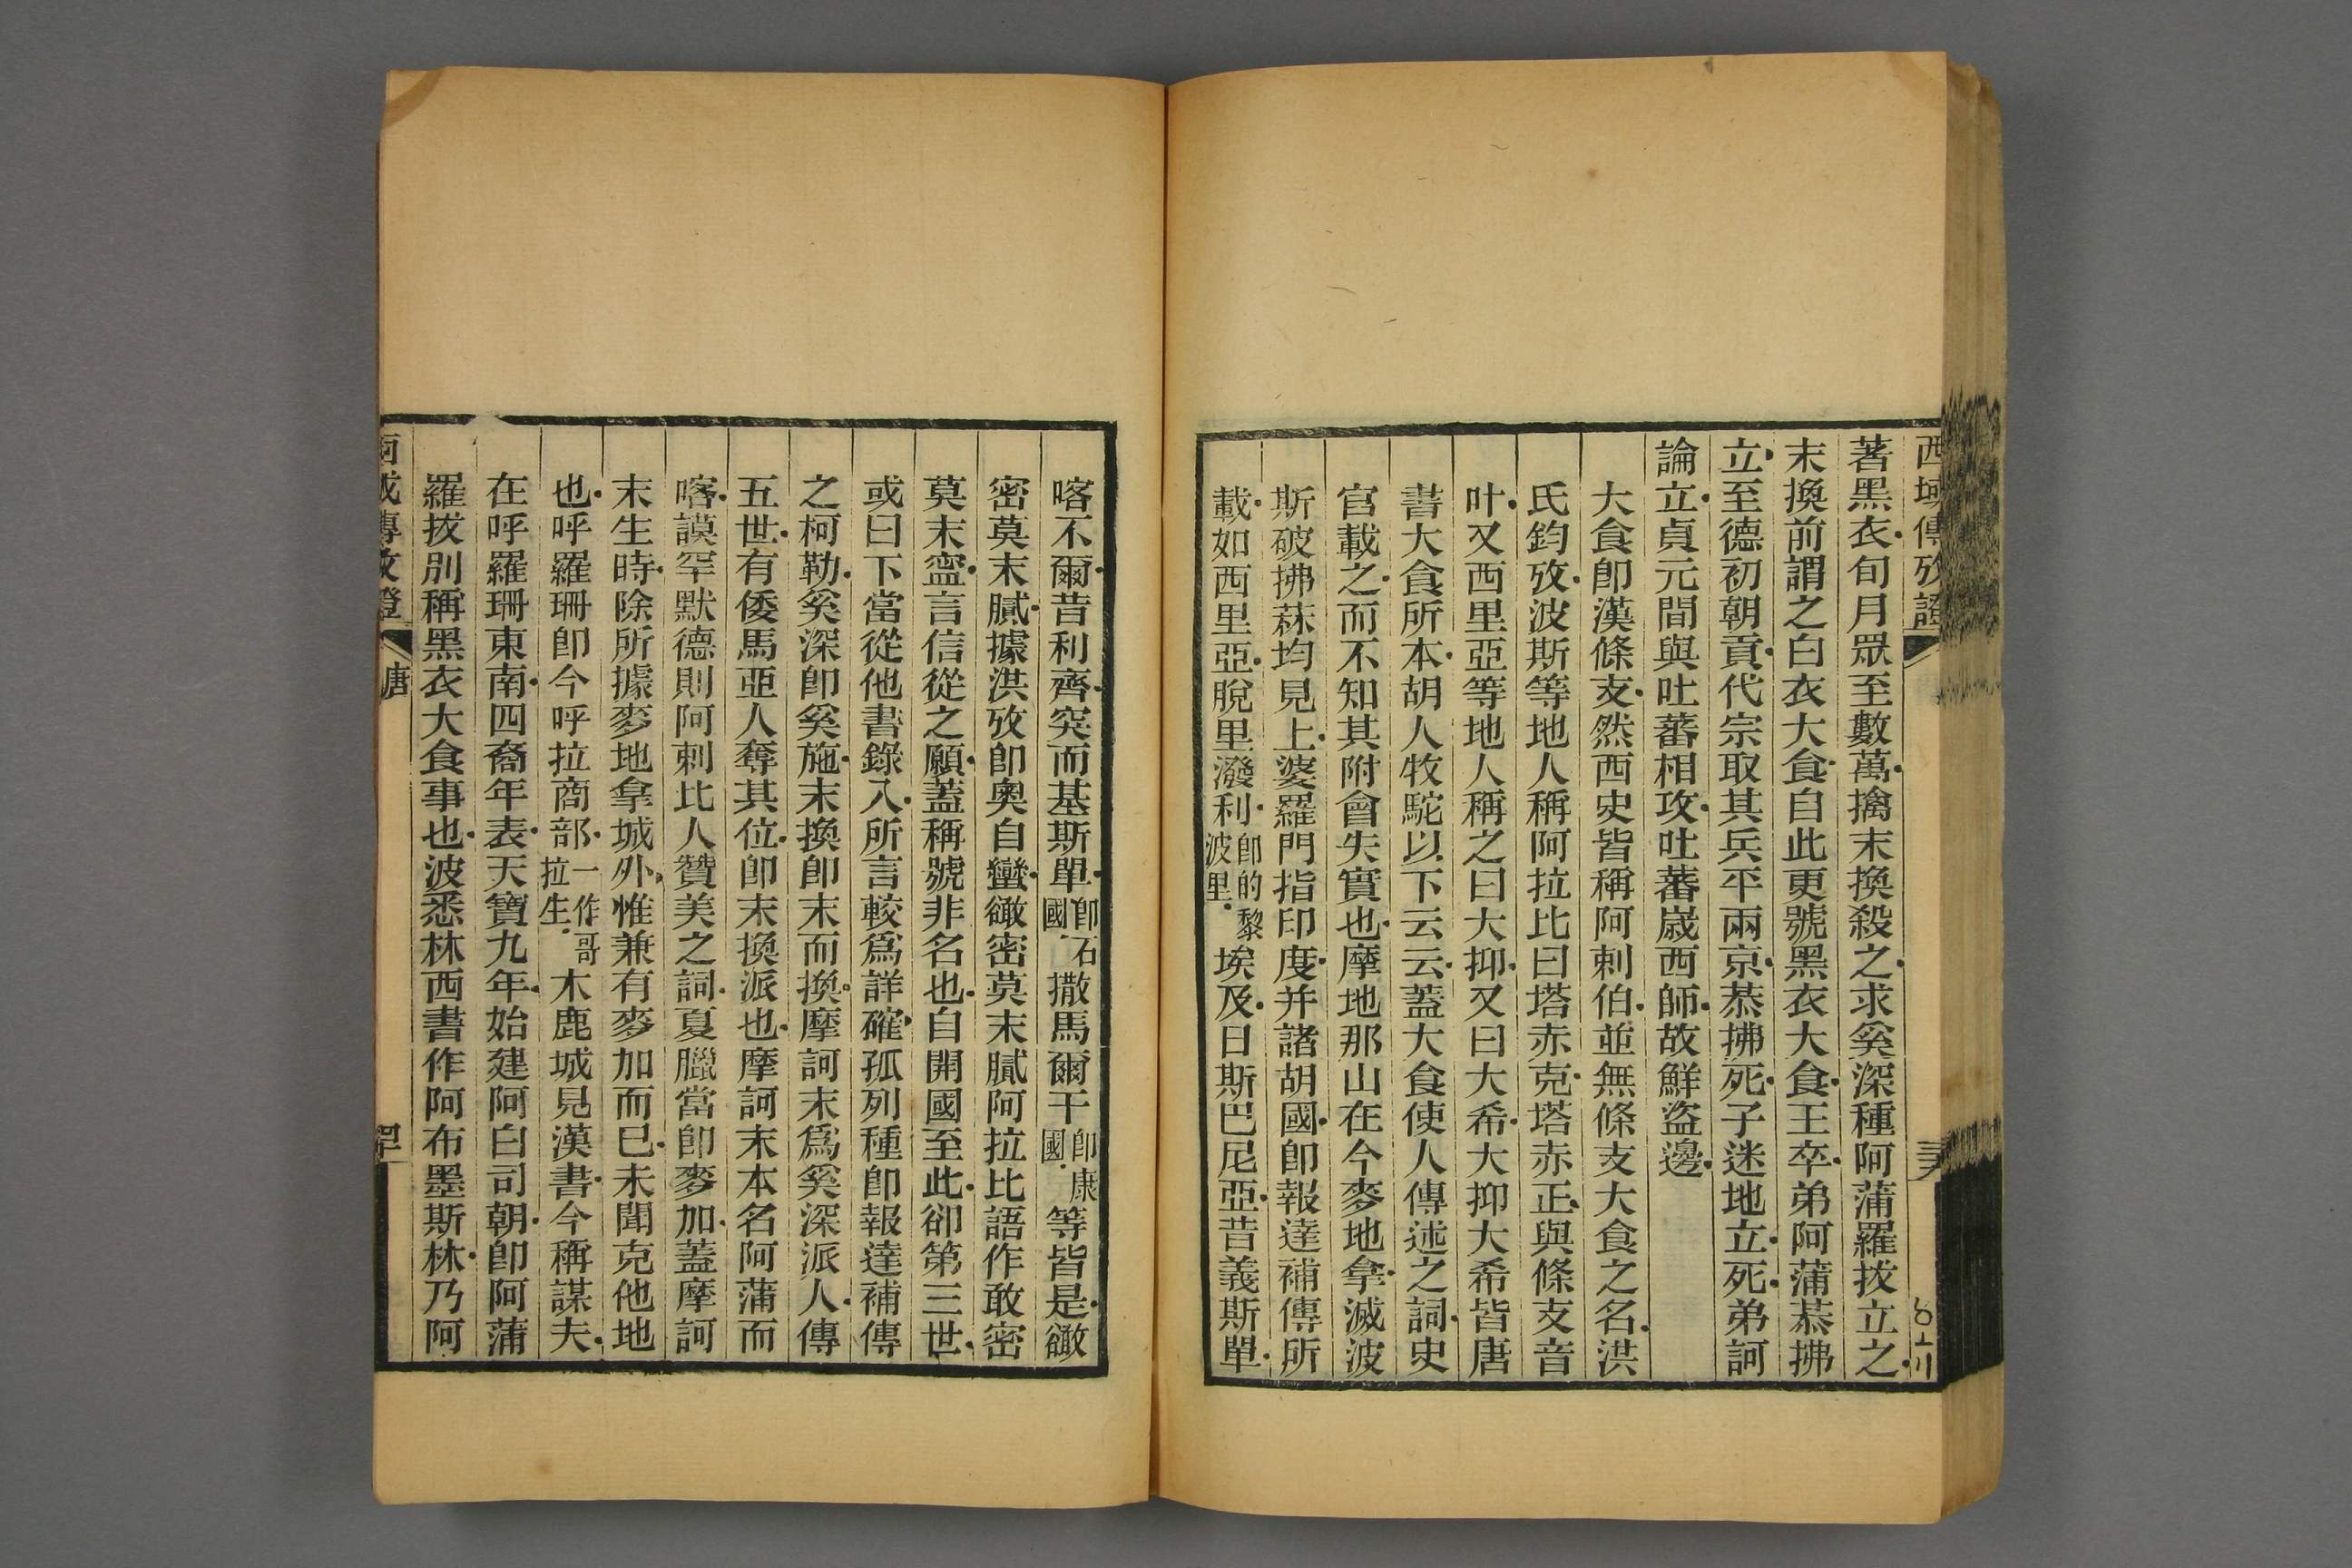 西域傳攷證
著黑衣旬月眾至數萬擒末換殺之求奚深種阿蒲羅拔立之
末換前謂之白衣大食自此更號黑衣大食王卒弟阿蒲恭拂
立至德初朝貢代宗取其兵平兩京恭拂死子迷地立死弟訶
論立貞元間與吐蕃相攻吐蕃歲西師故鮮盜邊
大食卽漢條支然西史皆稱阿剌伯並無條支大食之名洪
氏鈞攷波斯等地人稱阿拉比曰塔赤克塔赤正與條支音
叶又西里亞等地人稱之曰大抑又曰大希大抑大希皆唐
書大食所本胡人牧駝以下云云蓋大食使人傳述之詞史
官載之而不知其附會失實也摩地那山在今麥地拿滅波
斯破拂菻均見上婆羅門指印度并諸胡國卽報達補傳所
載如西里亞脫里潑利卽的黎波里埃及日斯巴尼亞昔義斯單
喀不爾昔利齊突而基斯單卽石國撒馬爾干卽康國等皆是𡾋
密莫末膩據洪攷卽奧自蠻𡾋密莫末膩阿拉比語作敢密
莫末𡩋言信從之願蓋稱號非名也自開國至此卻第三世
或曰下當從他書錄入所言較爲詳確孤列種卽報達補傳
之柯勒奚深卽奚施末換卽末而換摩訶末爲奚深派人傳
五世有倭馬亞人奪其位卽末換派也摩訶末本名阿蒲而
喀謨罕默德則阿剌比人贊美之詞夏臘當卽麥加蓋摩訶
末生時除所據麥地拿城外惟兼有麥加而已未聞克他地
也呼羅珊卽今呼拉商部一作哥拉生木鹿城見漢書今稱謀夫
在呼羅珊東南四裔年表天寶九年始建阿白司朝卽阿蒲
羅拔別稱黑衣大食事也波悉林西書作阿布墨斯林乃阿
唐